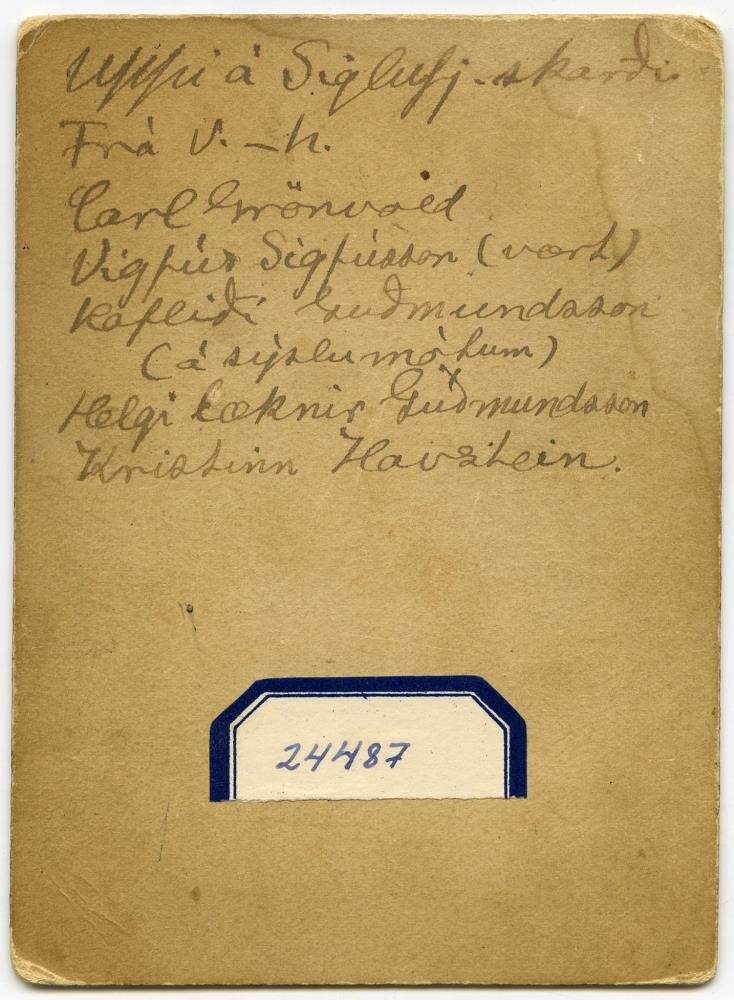 Uppi á Siglufj. skarði
Frá V. – h.
Carl Grönvold
Vigfús Sigfússon (vert)
Hafliði Guðmundsson
(á sýslumótum)
Helgi læknir Guðmundsson
Kristinn Havstein.
24487